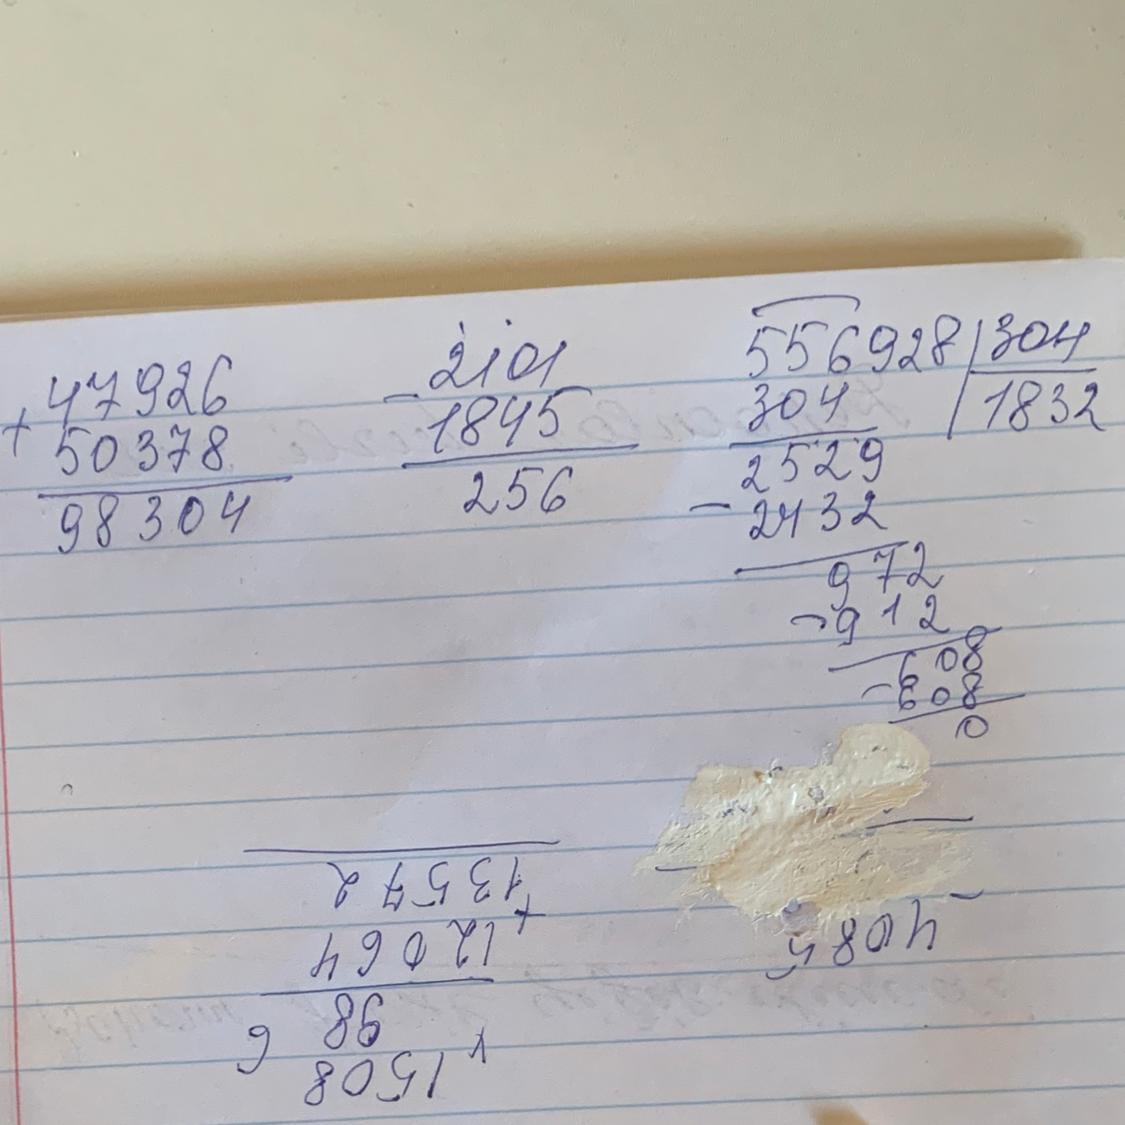 47926
+
50378
98304
2101
-
1845
256
556928 | 304
304 | 1832
2529
- 2432
972
- 912
608
- 608
0
1508
x
98
12064
+
13572
6
4085
-